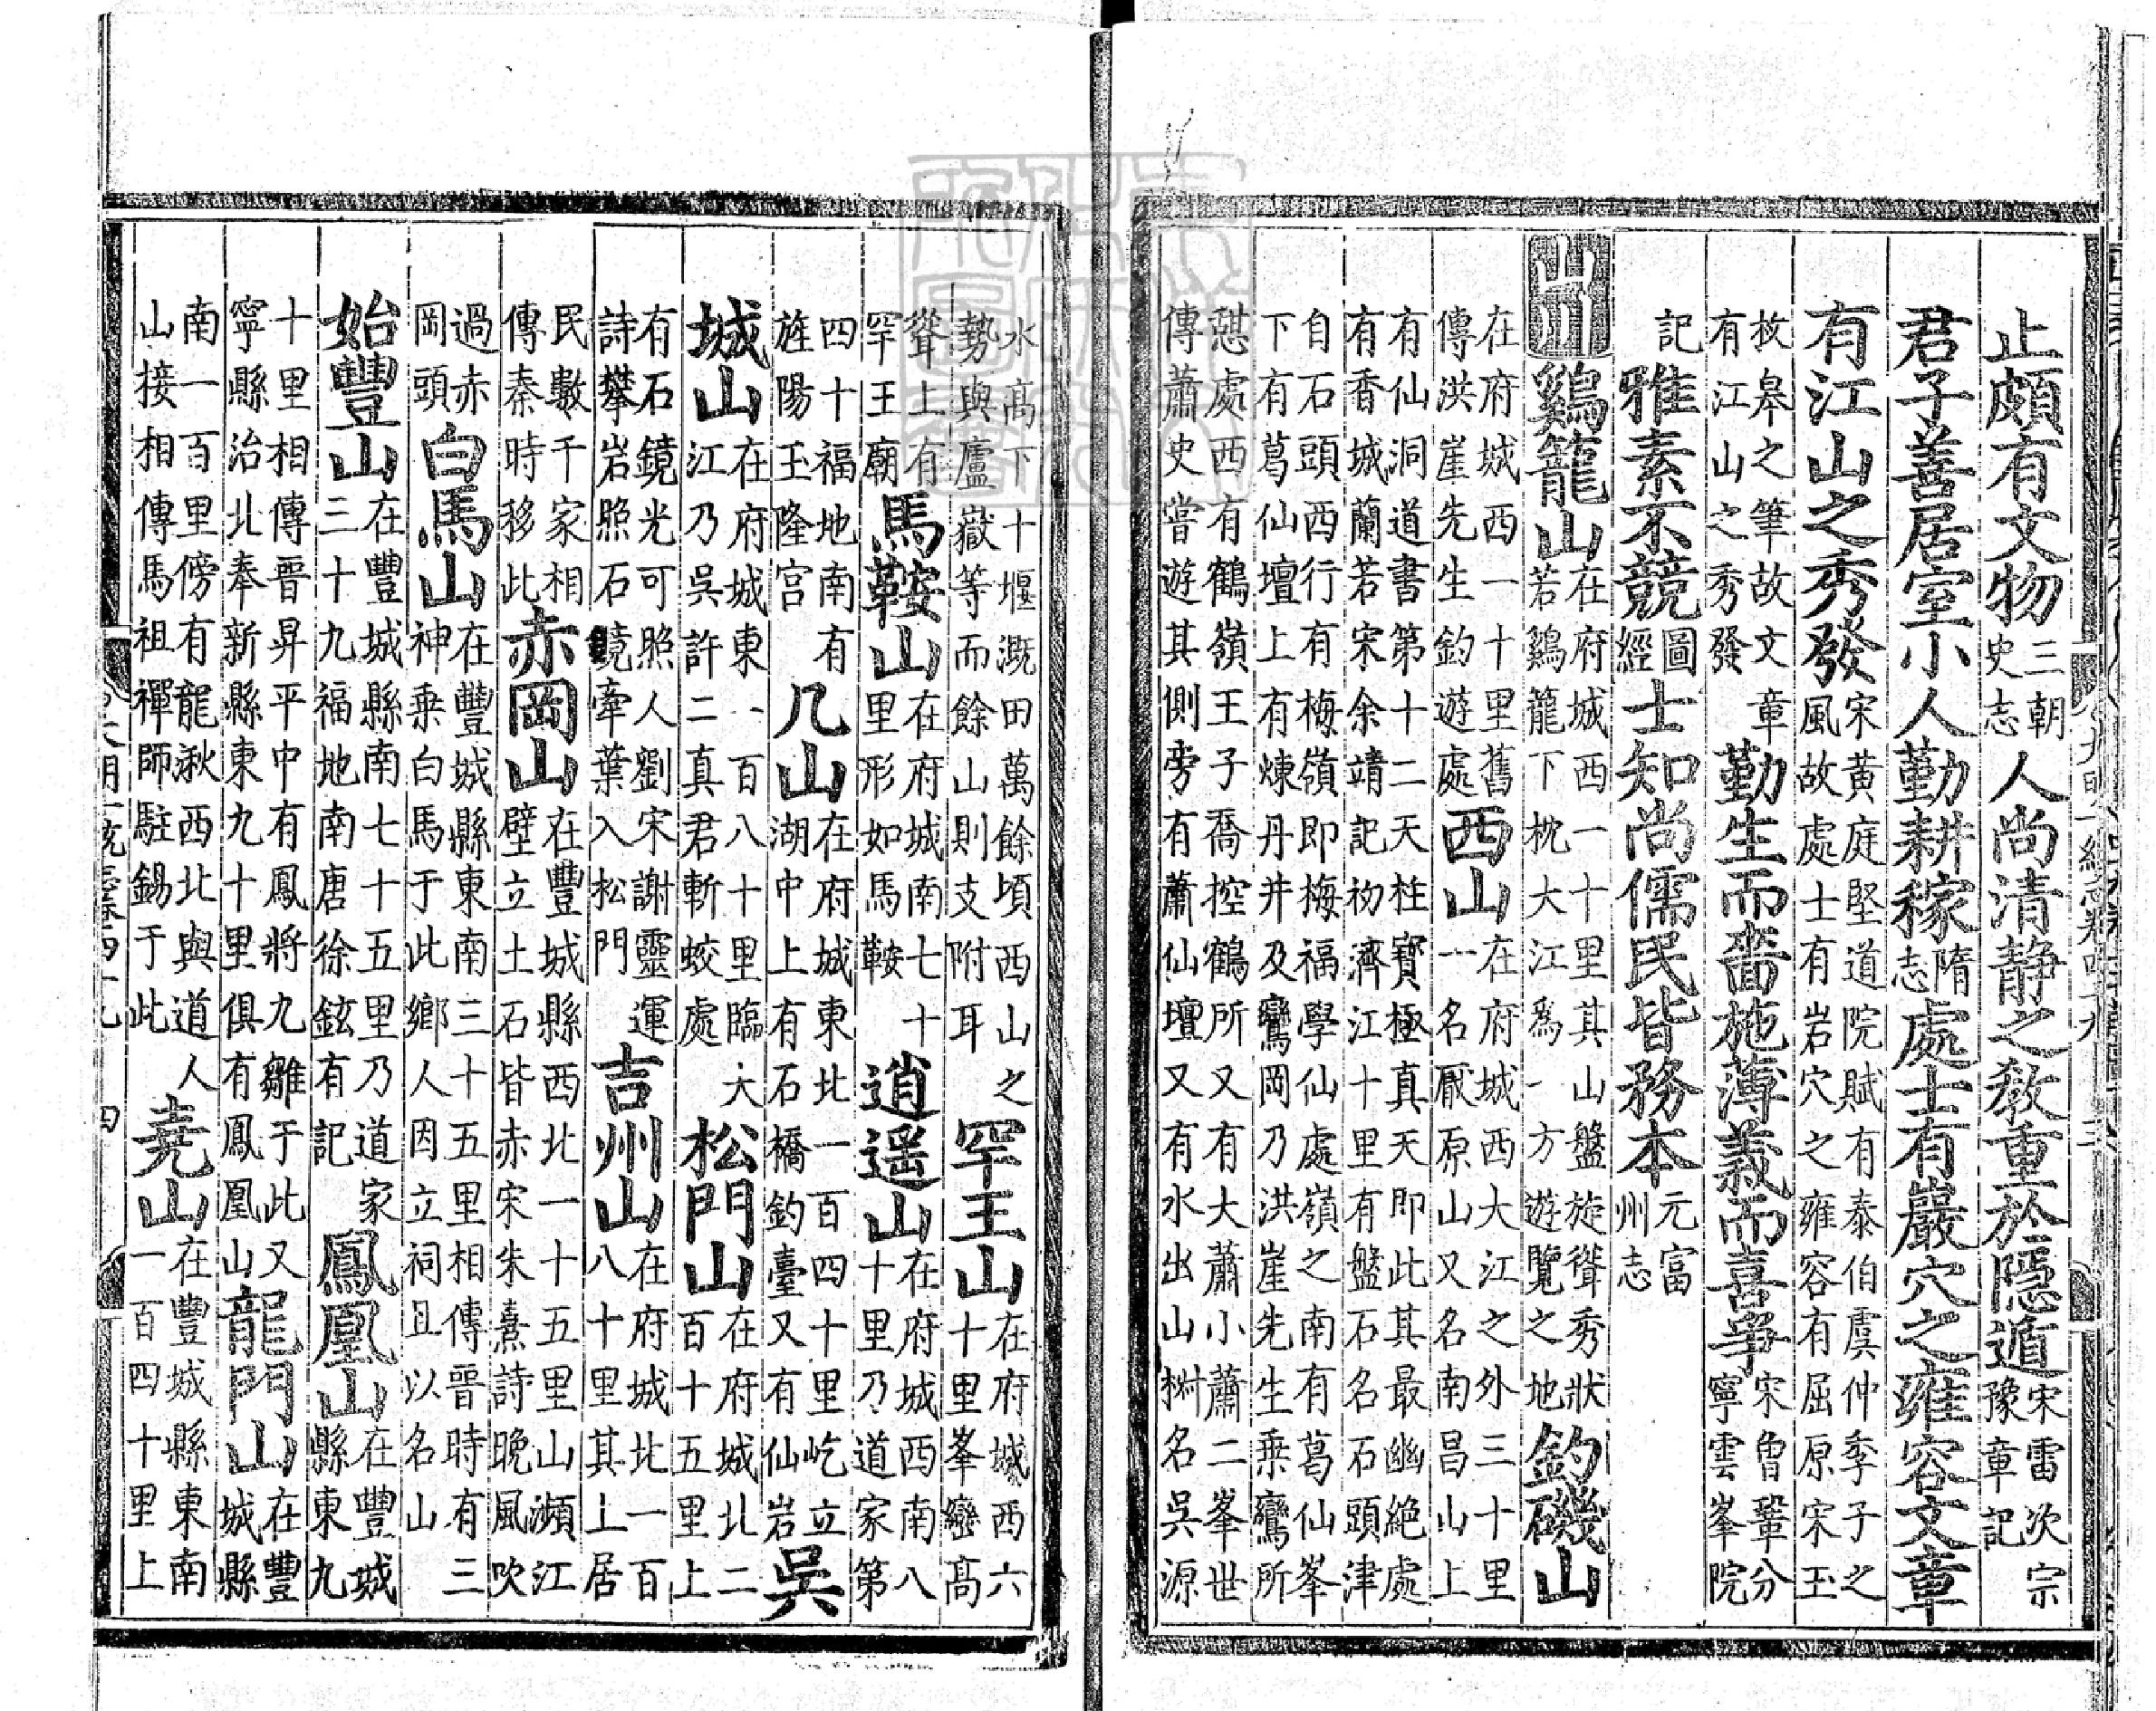 止頗有文物三朝史志人尚清靜之教重於隱遁宋雷次宗豫章記
君子善居室小人勤耕稼隋志處士有巖穴之雍容文章
有江山之秀發宋黄庭堅道院賦有泰伯虞仲季子之風故處士有岩穴之雍容有屈原宋玉
枚皋之筆故文章有江山之秀發勤生而嗇施薄義而喜爭宋曾鞏分寧雲峯院
記雅素不競圖經士知尚儒民皆務本元富州志
山川鷄籠山在府城西一十里其山盤旋聳秀狀若鷄籠下枕大江爲一方遊覽之地釣磯山
在府城西一十里舊傳洪崖先生釣遊處西山在府城西大江之外三十里一名厭原山又名南昌山上
有仙洞道書第十二天柱寶極真天即此其最幽絶處有香城蘭若宋余靖記初濟江十里有盤石名石頭津
自石頭西行有梅嶺即梅福學仙處嶺之南有葛仙峯下有葛仙壇上有煉丹井及鸞岡乃洪崖先生乘鸞所
憇處西有鶴嶺王子喬控鶴所又有大蕭小蕭二峯世傳蕭史嘗遊其側旁有蕭仙壇又有水出山椒名吳源
水高下十堰溉田萬餘頃西山之勢與廬嶽等而餘山則支附耳罕王山在府城西六十里峯巒高
聳上有罕王廟馬鞍山在府城南七十里形如馬鞍逍遥山在府城西南八十里乃道家第
四十福地南有旌陽玉隆宫几山在府城東北一百四十里屹立湖中上有石橋釣臺又有仙岩吳
城山在府城東一百八十里臨大江乃吳許二真君斬蛟處松門山在府城北二百十五里上
有石鏡光可照人劉宋謝靈運詩攀岩照石鏡牽葉入松門吉州山在府城北一百八十里其上居
民數千家相傳秦時移此赤岡山在豐城縣西北一十五里山瀕江壁立土石皆赤宋朱熹詩晚風吹
過赤岡頭白馬山在豐城縣東南三十五里相傳晉時有三神乘白馬于此鄉人因立祠且以名山
始豐山在豐城縣南七十五里乃道家三十九福地南唐徐鉉有記鳳凰山在豐城縣東九
十里相傳晉昇平中有鳳將九雛于此又寧縣治北奉新縣東九十里俱有鳳凰山龍門山在豐城縣
南一百里傍有龍湫西北與道人山接相傳馬祖禪師駐錫于此堯山在豐城縣東南一百四十里上
四